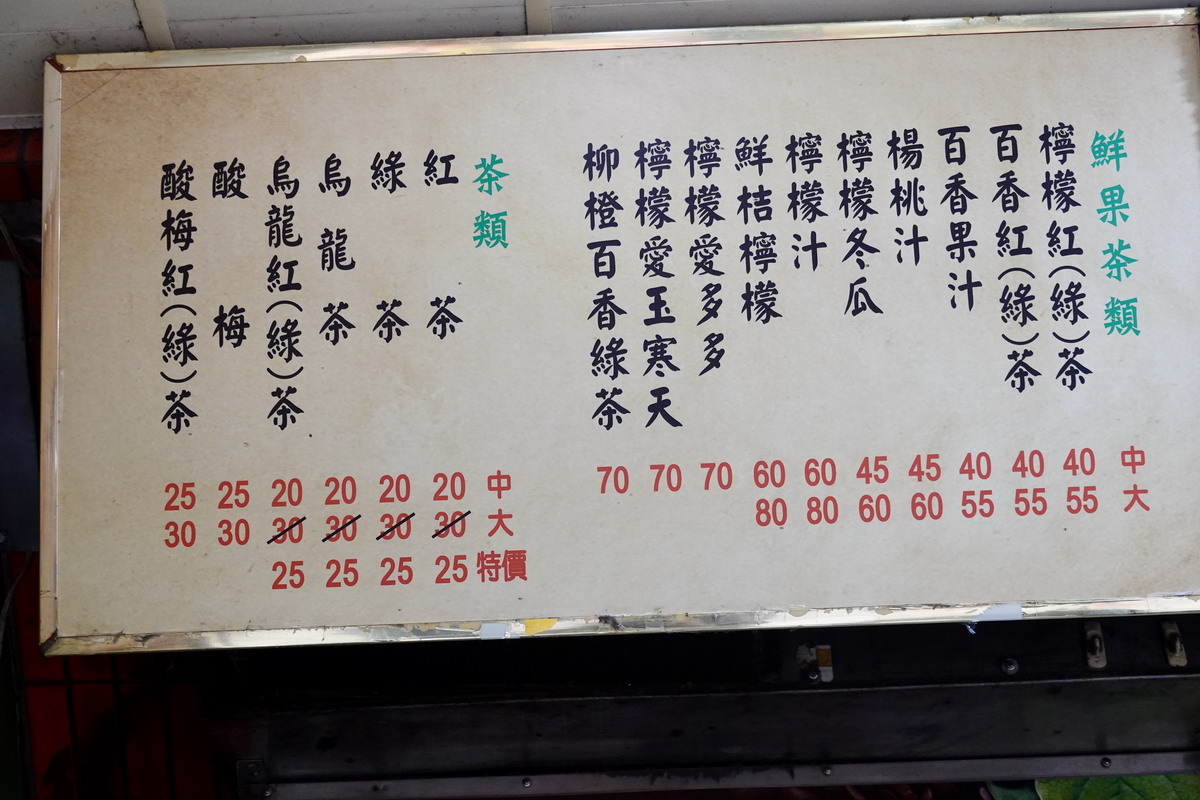 鮮果茶類
檸檬紅(綠)茶
百香紅(綠)茶
百香果汁
楊桃汁
檸檬冬瓜
檸檬汁
鮮桔檸檬
檸檬愛多多
檸檬愛玉寒天
柳橙百香綠茶
中 40 40 40 45 45 60 60 70 70 70
大 55 55 55 60 60 80 80
茶類
紅茶
綠茶
烏龍茶
烏龍紅(綠)茶
酸梅
酸梅紅(綠)茶
中 20 20 20 20 25 25
大 30 30 30 30 30 30
特價 25 25 25 25